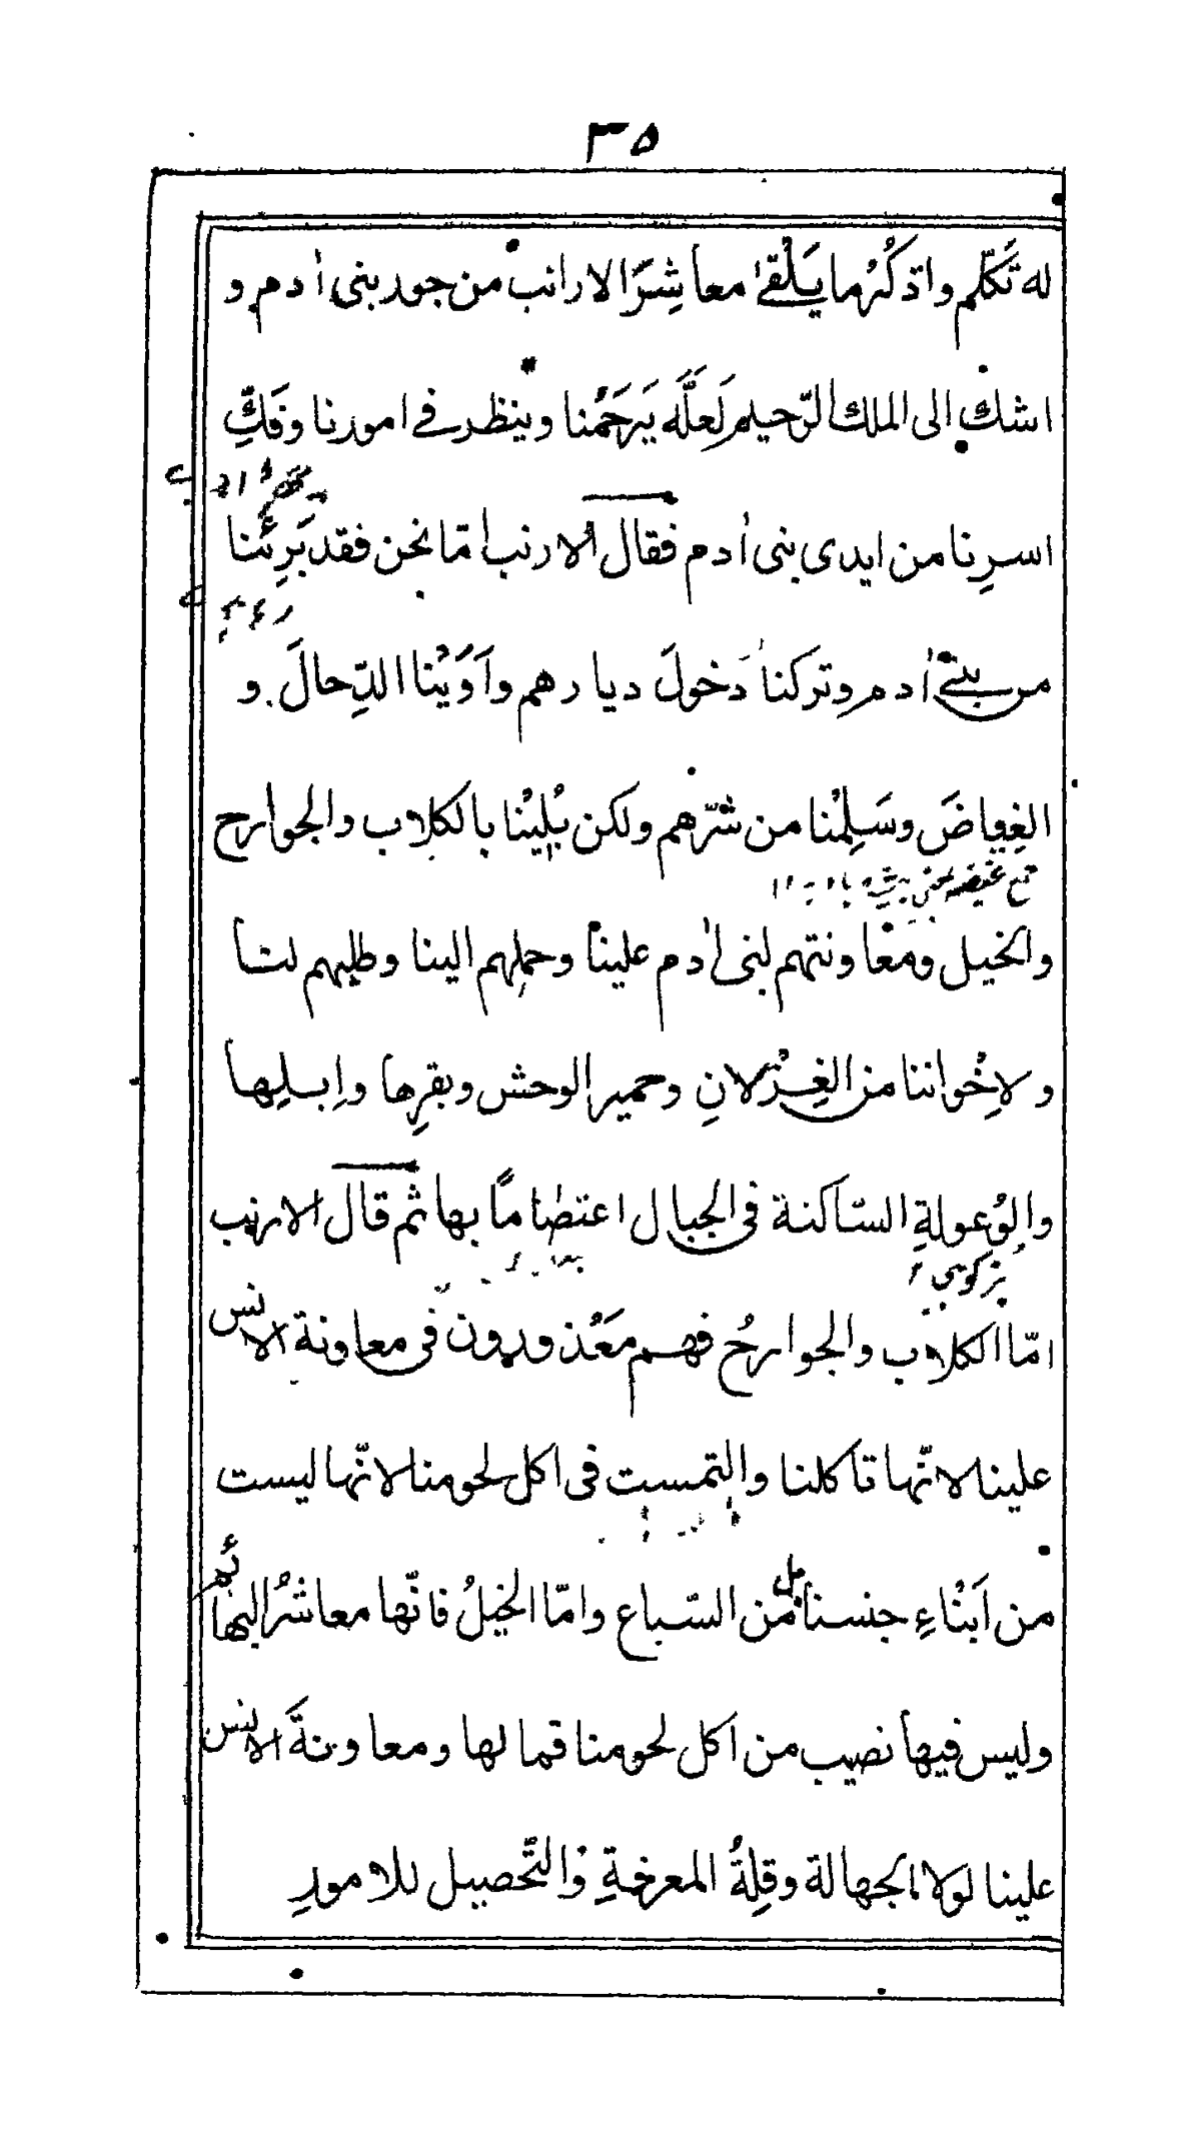 ٣٥
له تَكَلَّم واذكُرْ ما يَلْقىٰ معاشِرَ الارانب من جور بنى اٰدم و
اشك الى الملك الرّحيم لَعَلَّه يَرحَمُنا وينظر فى امورنا وفَكِّ
اسرِنا من ايدى بنى اٰدم فقال الارنب امّا نحن فقد بَرِئْنا
من بنى اٰدم وتركنا دَخولَ ديارهم واَوَيْنا الدِّحالَ و
الغِياضَ وسَلِمْنا من شرّهم ولكن بُلِيْنا بالكلاب والجوارح
جمع غيضه بمعنى بيشه ١٢
والخيل ومعاونتهم لبنى اٰدم علينا وحملِهم الينا وطلبهم لنا
ولاِخْواننا من الغِزْلانِ وحمير الوحش وبقرِها واِبلِها
والوُعولةِ السّاكنة فى الجبال اعتصامًا بها ثم قال الارنب
بز كوهى
امّا الكلاب والجوارحُ فهم مَعْذورون فى معاونة الانس
علينا لانّها تاكلنا والتمست فى اكل لحومنا لانّها ليست
من اَبْناءِ جنسنا بل من السّباع وامّا الخيلُ فانّها معاشرُ البهائم
وليس فيها نصيب من اكل لحومنا فما لها ومعاونةَ الانس
علينا لولا الجهالة وقِلةُ المعرفةِ والتّحصيل للامورِ